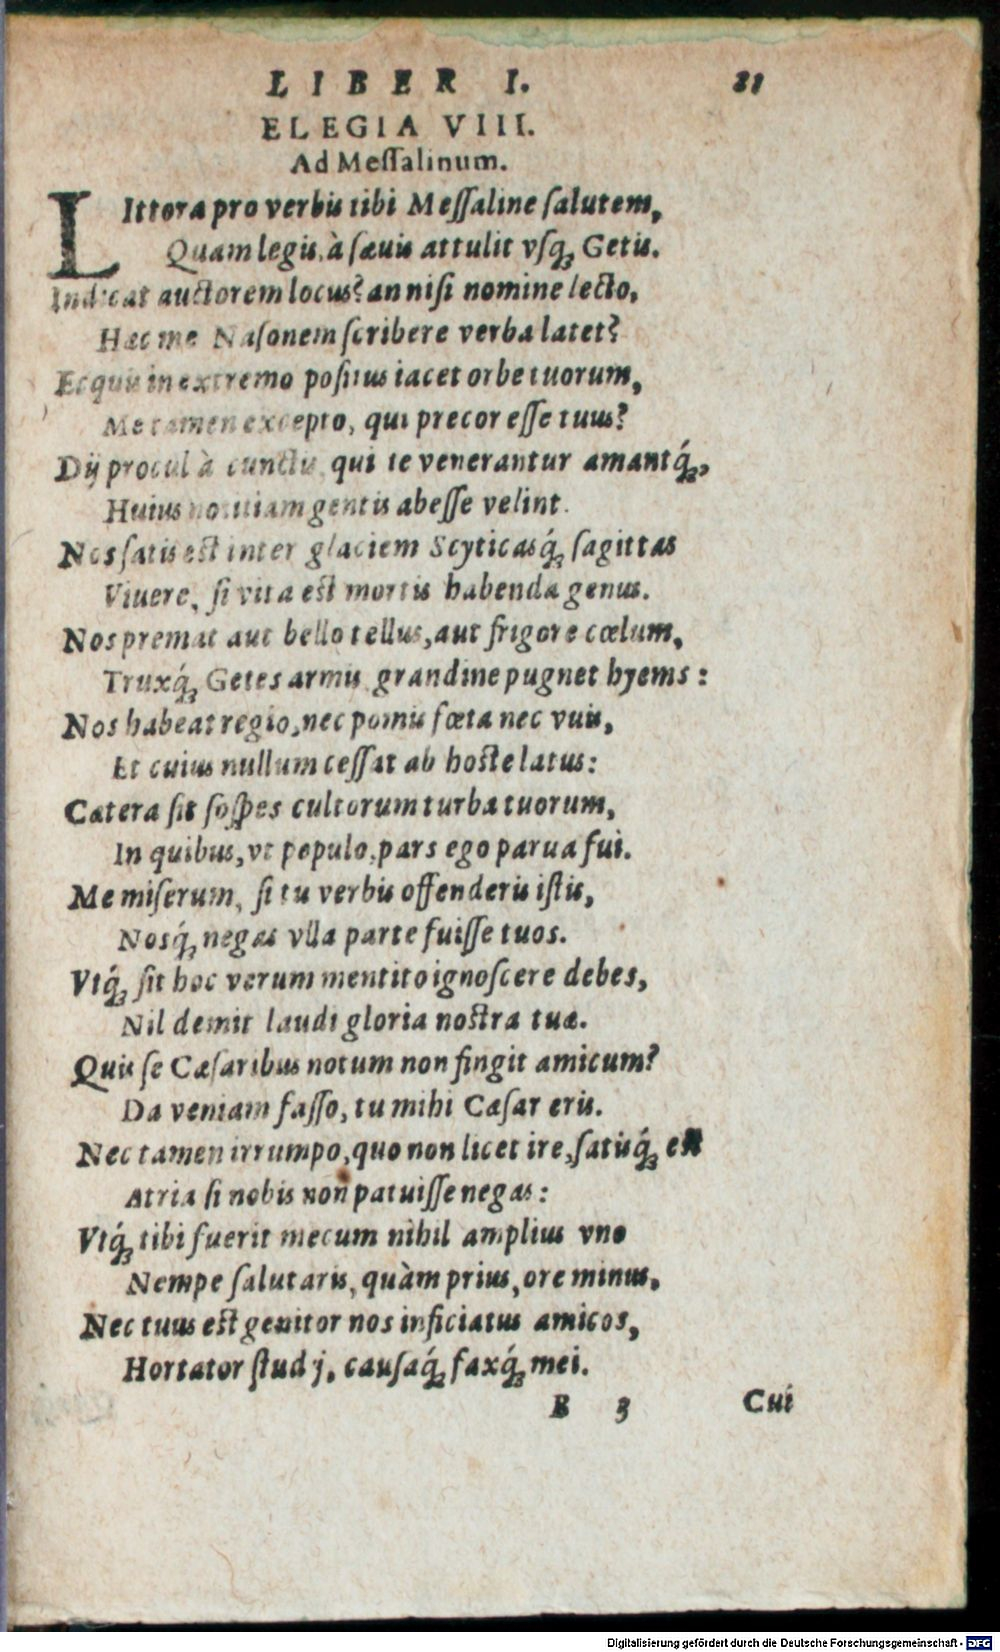 LIBER I. 21
ELEGIA VIII.
Ad Meſſalinum.
LIttera pro verbis tibi Meſſaline ſalutem,
Quam legis, à ſæuis attulit vſq́; Getis.
Indicat auctorem locus? an niſi nomine lecto,
Hæc me Naſonem ſcribere verba latet?
Ecquis in extremo poſitus iacet orbe tuorum,
Me tamen excepto, qui precor eſſe tuus?
Dij procul à cunctis, qui te venerantur amantq́;,
Huius notitiam gentis abeſſe velint.
Nos ſatis eſt inter glaciem Scyticasq́; ſagittas
Viuere, ſi vita eſt mortis habenda genus.
Nos premat aut bello tellus, aut frigore cœlum,
Truxq́; Getes armis grandine pugnet hyems:
Nos habeat regio, nec pomis fœta nec vuis,
Et cuius nullum ceſſat ab hoſte latus:
Cætera ſit ſoſpes cultorum turba tuorum,
In quibus, vt populo, pars ego parua fui.
Me miſerum, ſi tu verbis offenderis iſtis,
Nosq́; negas vlla parte fuiſſe tuos.
Vtq́; ſit hoc verum mentito ignoſcere debes,
Nil demit laudi gloria noſtra tuæ.
Quis ſe Cæſaribus notum non fingit amicum?
Da veniam faſſo, tu mihi Cæſar eris.
Nec tamen irrumpo, quo non licet ire, ſatisq́; eſt
Atria ſi nobis non patuiſſe negas:
Vtq́; tibi fuerit mecum nihil amplius vno
Nempe ſalutaris, quàm prius, ore minus,
Nec tuus eſt genitor nos inficiatus amicos,
Hortator ſtudj, cauſaq́; faxq́; mei.
B 3 Cui
Digitalisierung gefördert durch die Deutsche Forschungsgemeinschaft - DFG